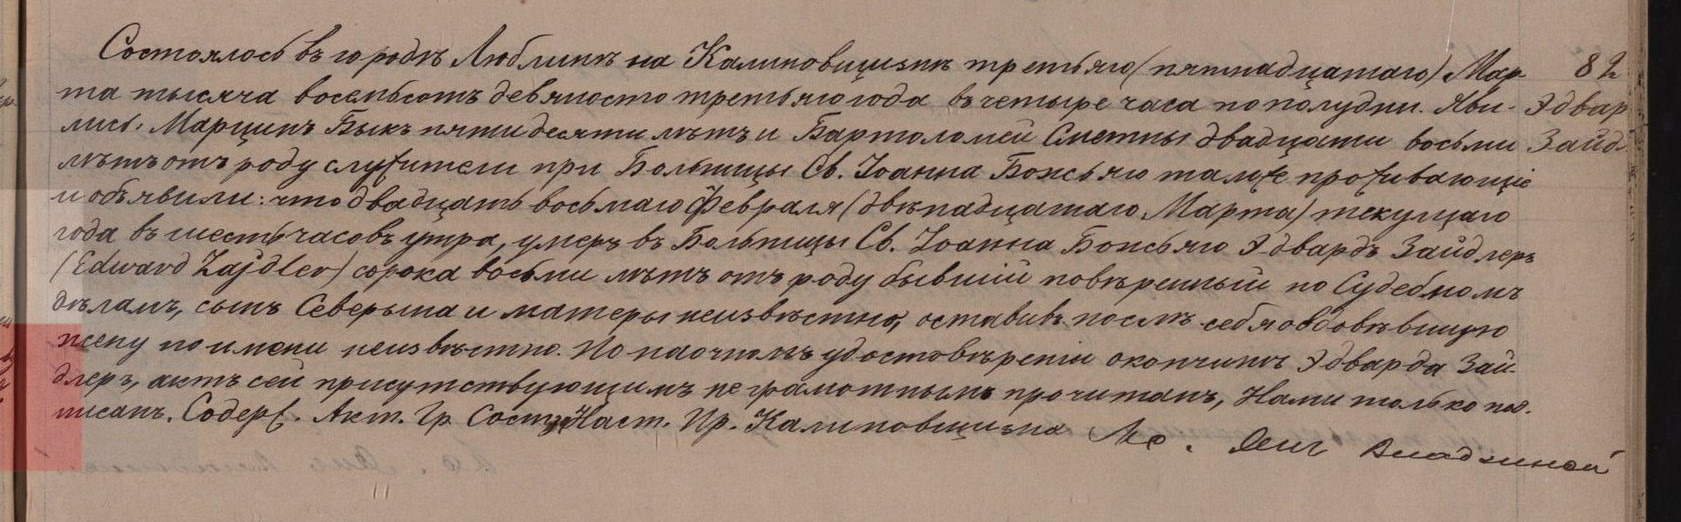 Состоялось въ городѣ Люблинѣ на Калиновщизнѣ третьяго (пятнадцатаго) Мар- 82
та тысяча восемьсотъ девяносто третьяго года въ четыре часа по полудни. Яви- Эдвар
лись Марцинъ Быкъ пятидесяти лѣтъ и Бартоломей Сметны двадцати восьми Зайд
лѣтъ отъ роду служители при Больницы Св. Іоанна Божьяго тамже проживающіе
и объявили: что двадцать восьмаго Февраля (двѣнадцатаго Марта) текущаго
года въ шесть часовъ утра, умеръ въ Больницы Св. Іоанна Божьяго Эдвардъ Зайдлеръ
(Edward Zajdler) сорока восьми лѣтъ отъ роду бывшій повѣренный по Судебномъ
дѣламъ, сынъ Северына и матеры неизвѣстно, оставивъ послѣ себя овдовѣвшую
жену по имени неизвѣстно. По наочномъ удостовѣреніи окончинѣ Эдварда Зай-
длеръ, актъ сей присутствующимъ неграмотнымъ прочитанъ, Нами только под-
писанъ. Содерж. Акт. Гр. Сост. Наст. Пр. Калиновщизна Кс.